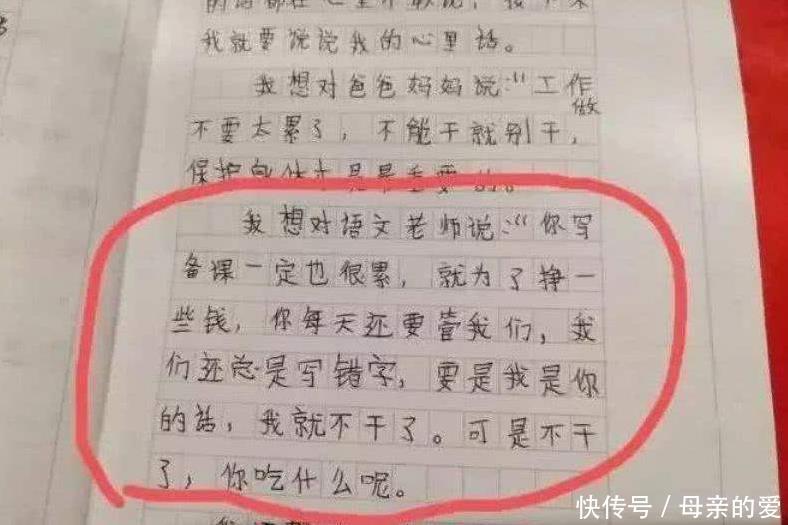 我就要说说我的心里话。
我想对爸爸妈妈说：“工作做
不要太累了，不能干就别干，
保护身体才是最重要的。
我想对语文老师说：“你写
备课一定也很累，就为了挣一
些钱，你每天还要管我们，我
们还总是写错字，要是我是你
的话，我就不干了。可是不干
了，你吃什么呢。
快传号／母亲的爱